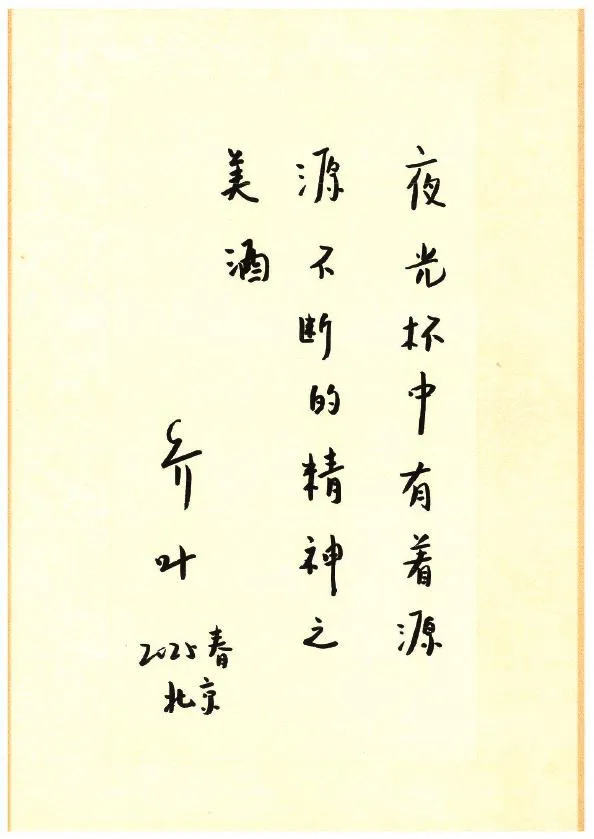 夜光杯中有着源
源不断的精神之
美酒
乔叶
2025春
北京